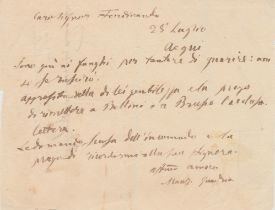 Caro Signor Ferdinando
25 Luglio
Acqui
Sono qui ai fanghi per tentare di guarire: non
so se riuscirò.
approfitto della di lei gentilezza e la prego
di rimettere a Bellini e a Bruno l'acclusa
lettera.
Le domando scusa dell'incomodo e la
prego di ricordarmi alla sua Signora.